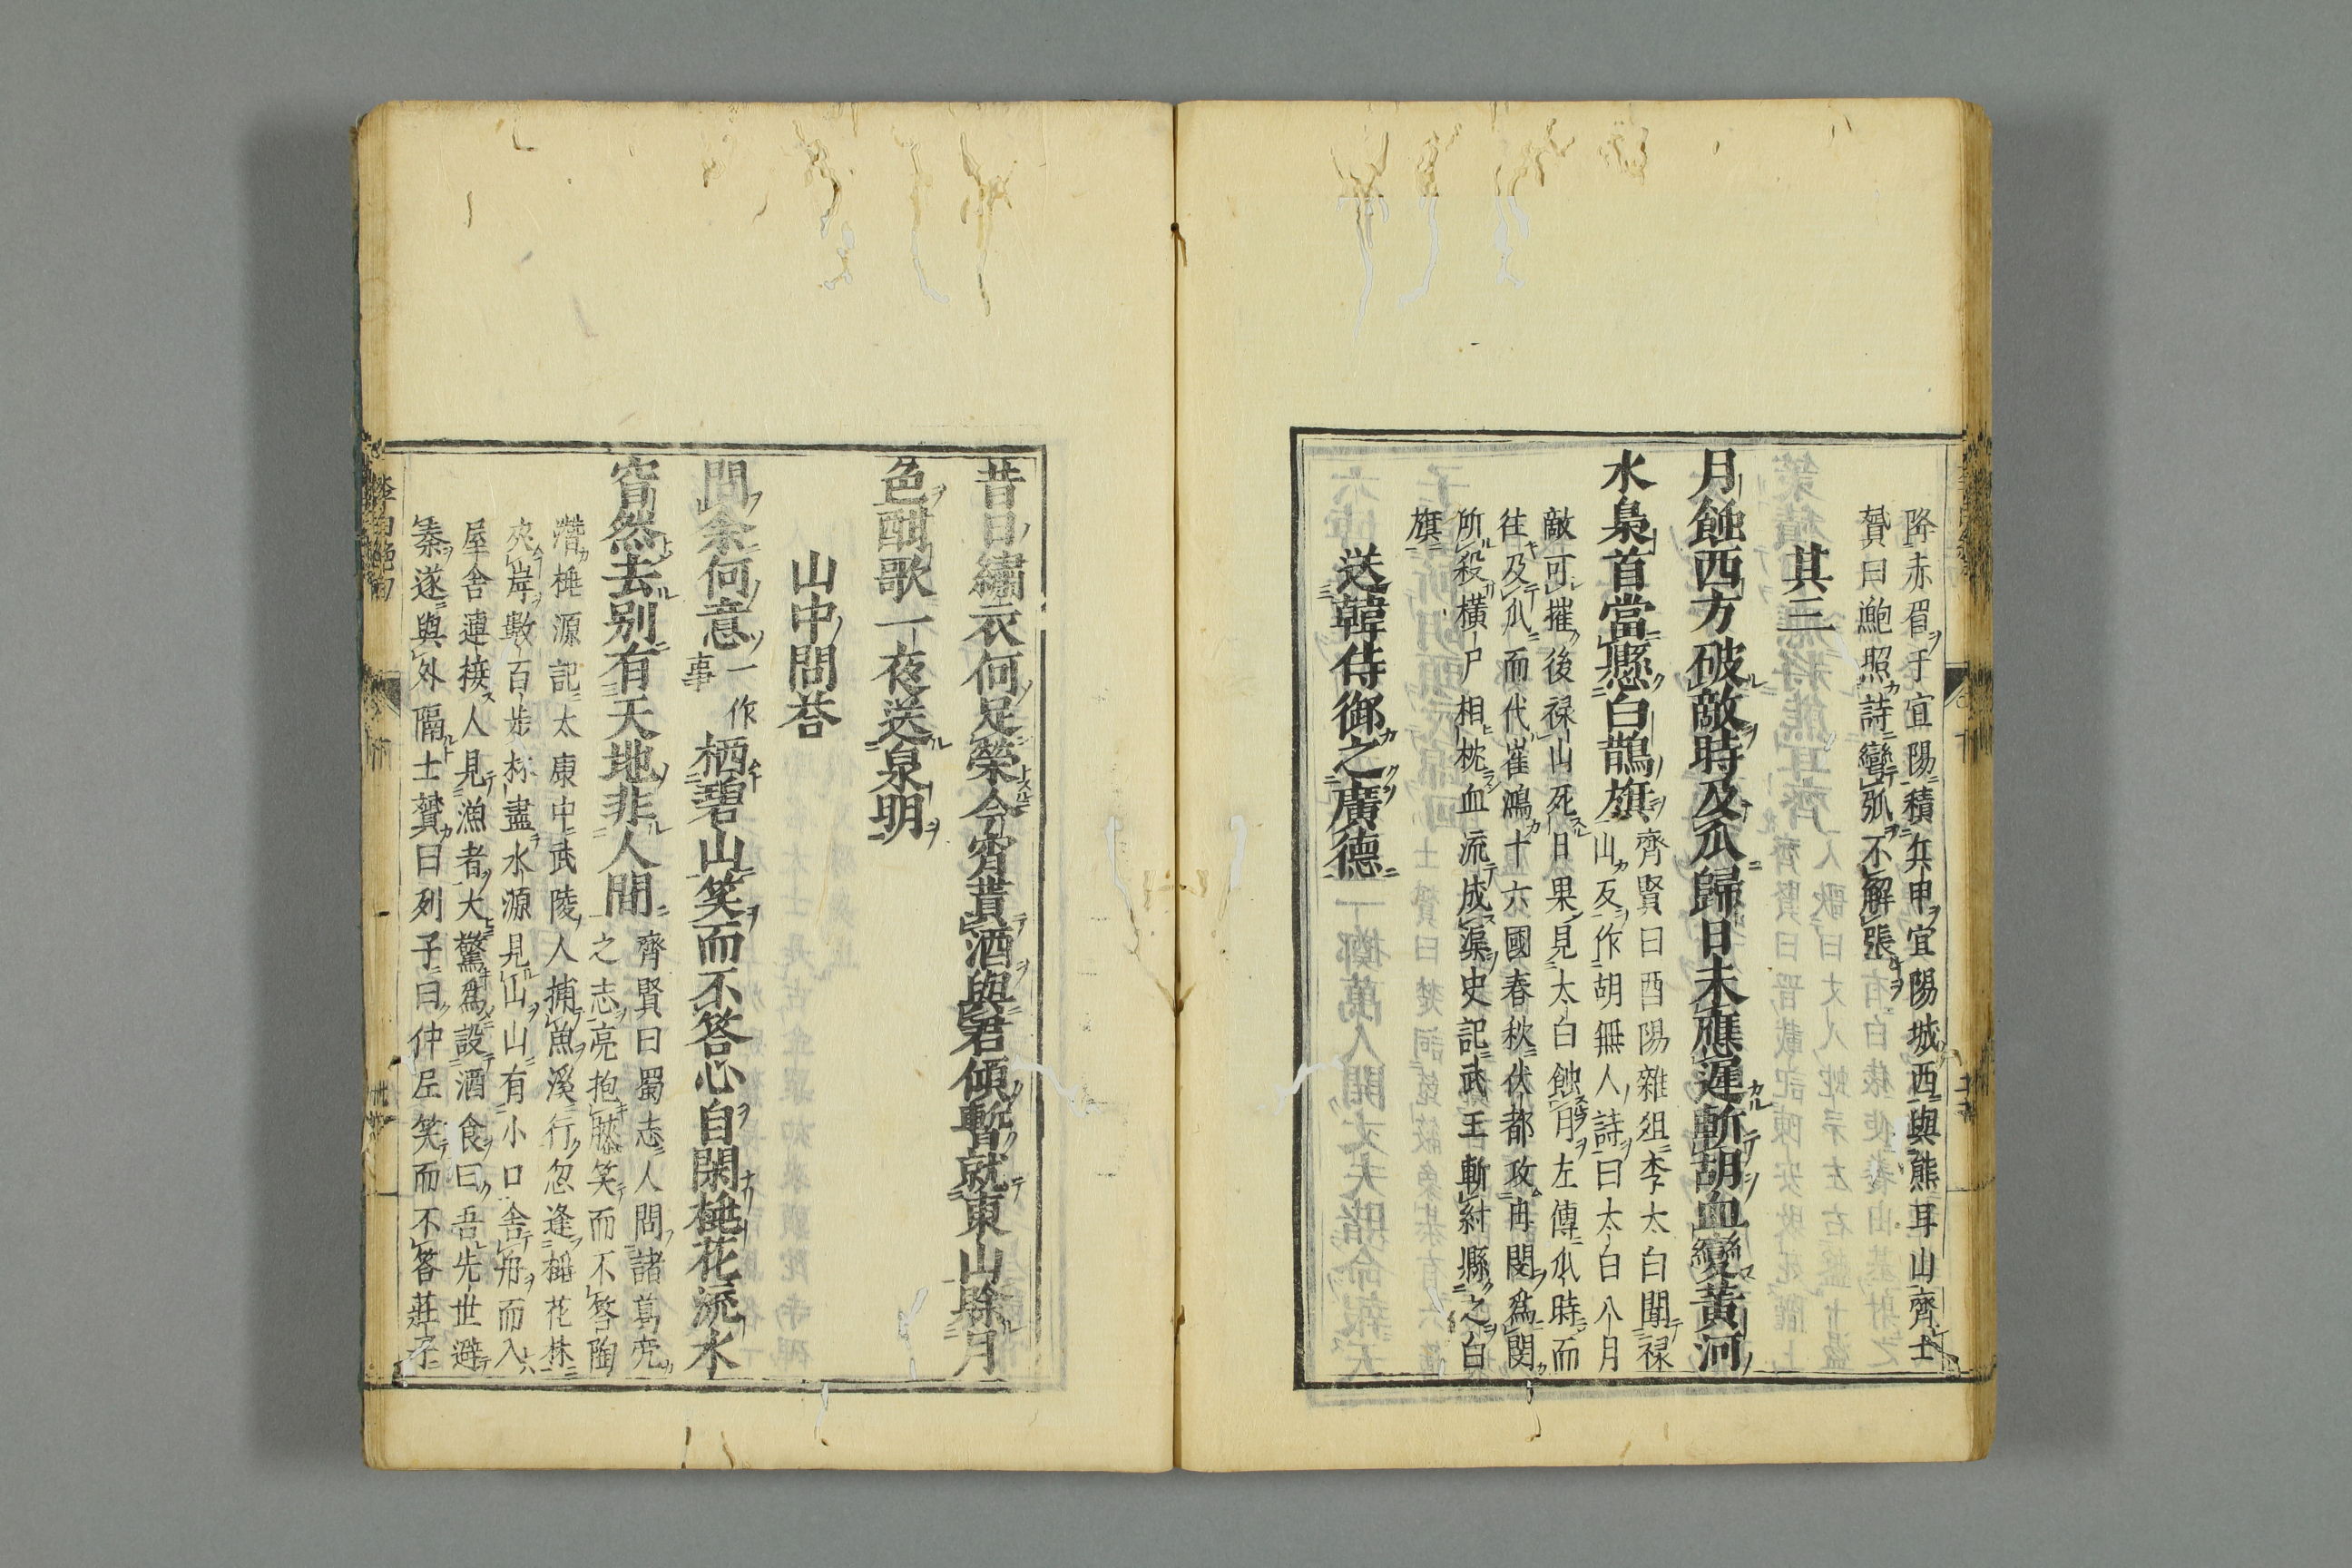 降赤眉于宜陽積兵甲宜陽城西與熊耳山齊士
贇曰鮑照詩彎弧不解張
其三
月蝕西方破敵時及瓜歸日未應遲斬胡血變黃河
水梟首當懸白鵲旗
齊賢曰酉陽雜俎李太白聞禄
山反作胡無人詩曰太白入月
敵可摧後禄山死日果見太白蝕月左傳瓜時而
往及瓜而代崔鴻十六國春秋伏都攻冉閔爲閔
所殺橫尸相枕血流成渠史記武王斬紂縣之白
旗
送韓侍御之廣德
昔日繡衣何足榮今宵貰酒與君傾暫就東山賖月
色酣歌一夜送泉明
山中問荅
問余何意
一作
事
栖碧山笑而不答心自閑桃花流水
窅然去別有天地非人間
齊賢曰蜀志人問諸葛亮
之志亮抱膝笑而不答陶
潛桃源記太康中武陵人捕魚溪行忽逢桃花林
夾岸數百步林盡水源見山山有小口舍舟而入
屋舍連接人見漁者大驚爲設酒食曰吾先世避
秦遂與外隔士贇曰列子曰仲尼笑而不答莊子